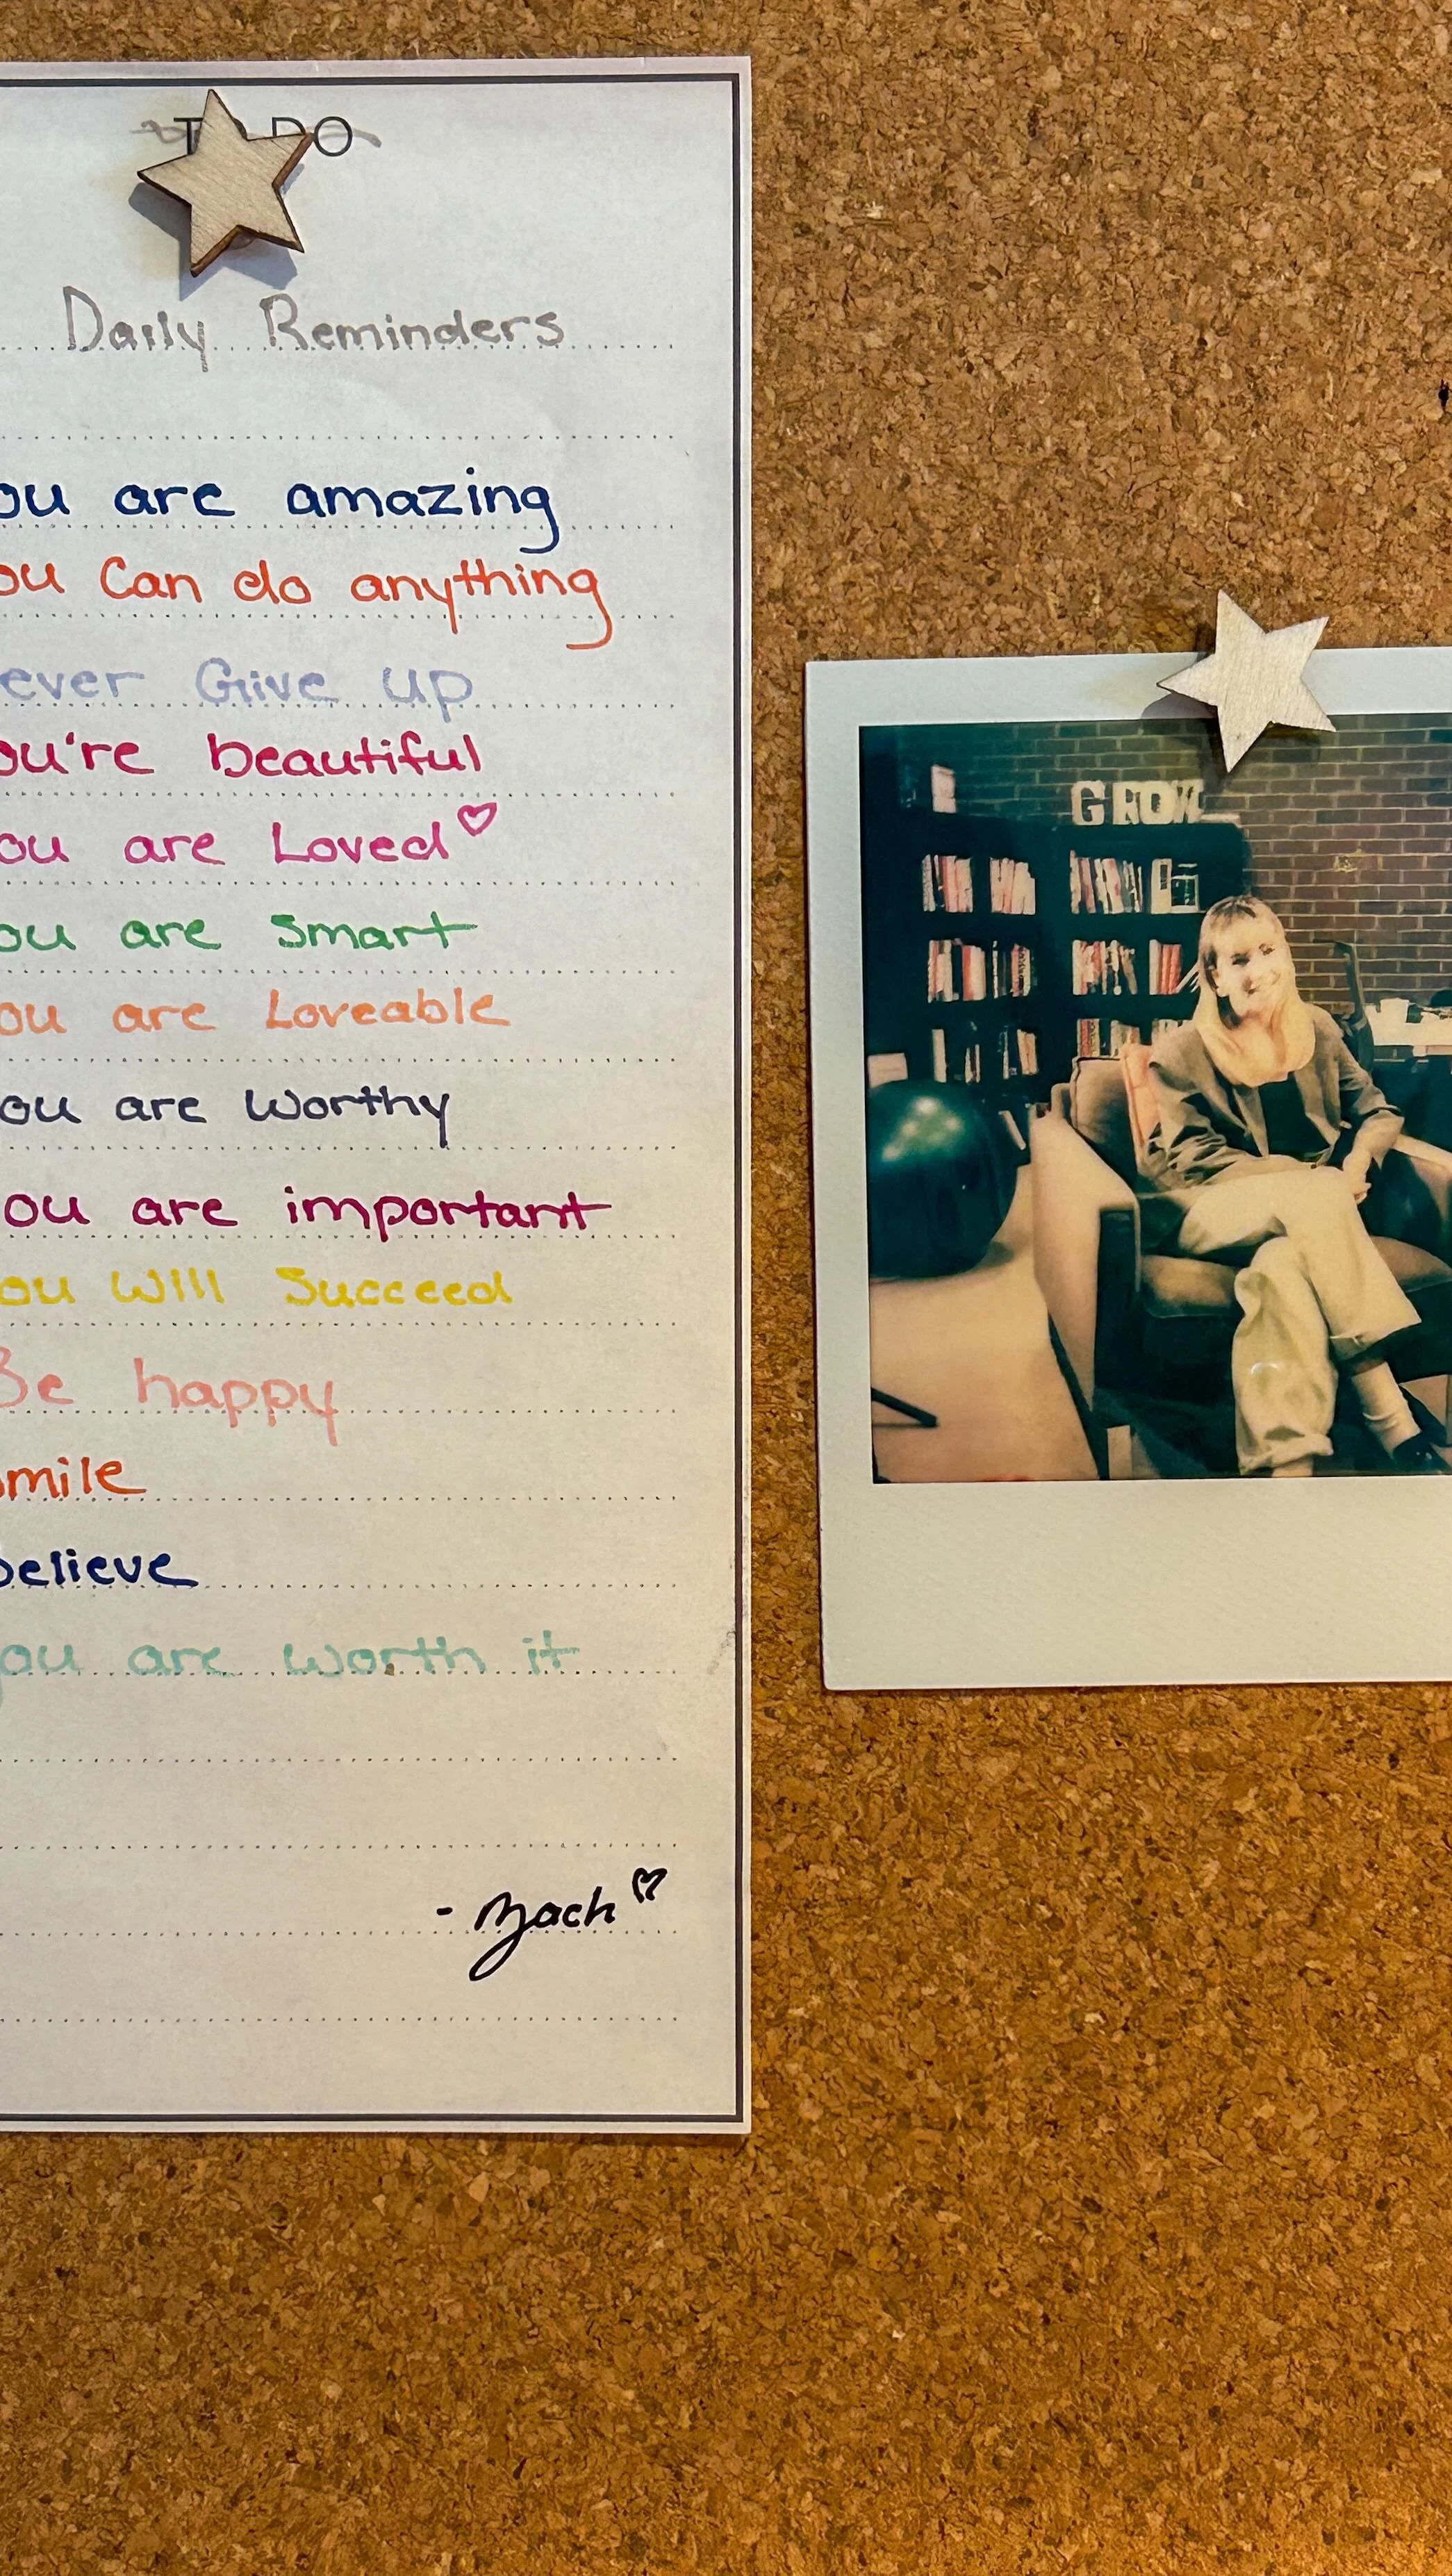 TO DO
Daily Reminders
ou are amazing
ou Can do anything
ever Give up
ou're beautiful
ou are Loved
ou are Smart
ou are Loveable
ou are Worthy
ou are important
ou Will Succeed
Be happy
mile
believe
you are worth it
- Zach
GROW